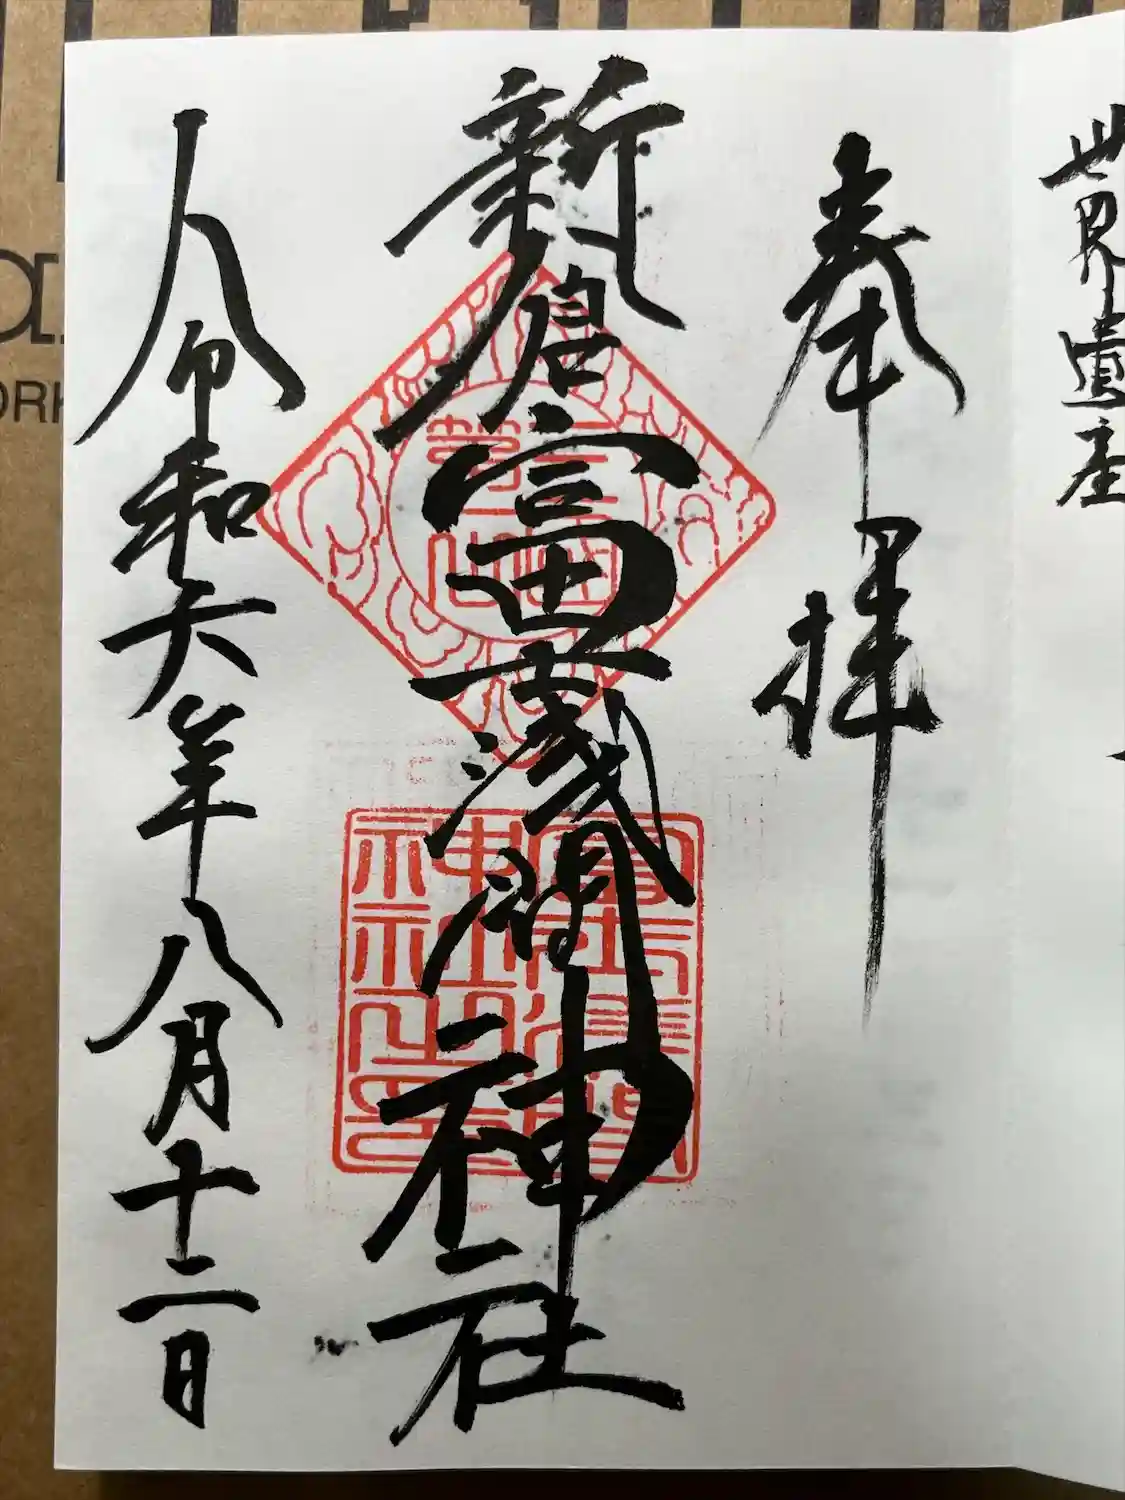 世界遺産
奉拝
新倉富士浅間神社
三國
第一山
富士浅間
神社之印
令和六年八月十二日